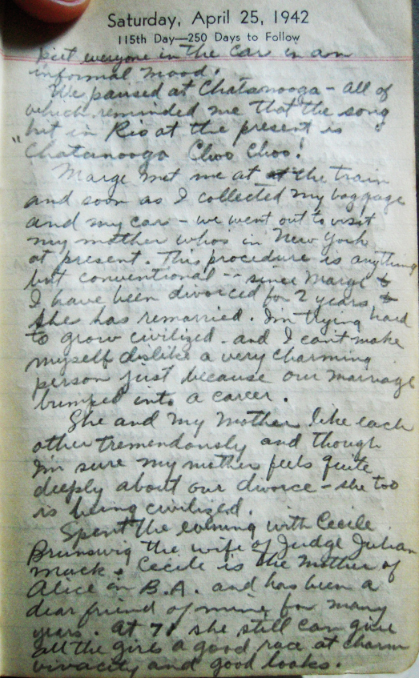 Saturday, April 25, 1942
115th Day—250 Days to Follow
put everyone in the car in an
informal mood.
We paused at Chatanooga - all of
which reminded me that the song
hit in Rio at the present is
"Chatanooga Choo Choo!"
Marge met me at the train
and soon as I collected my baggage
and my car - we went out to visit
my mother who's in New York
at present. This procedure is anything
but conventional -- since Marge &
I have been divorced for 2 years &
she has remarried. I'm trying hard
to grow civilized - and I can't make
myself dislike a very charming
person just because our marriage
bumped into a career.
She and my mother like each
other tremendously and though
I'm sure my mother feels quite
deeply about our divorce - she too
is being civilized.
Spent the evening with Cecile
Brunswig the wife of Judge Julian
Mack. Cecile is the mother of
Alice in B.A. and has been a
dear friend of mine for many
years. At 71 she still can give
all the girls a good race at charm
vivacity and good looks.